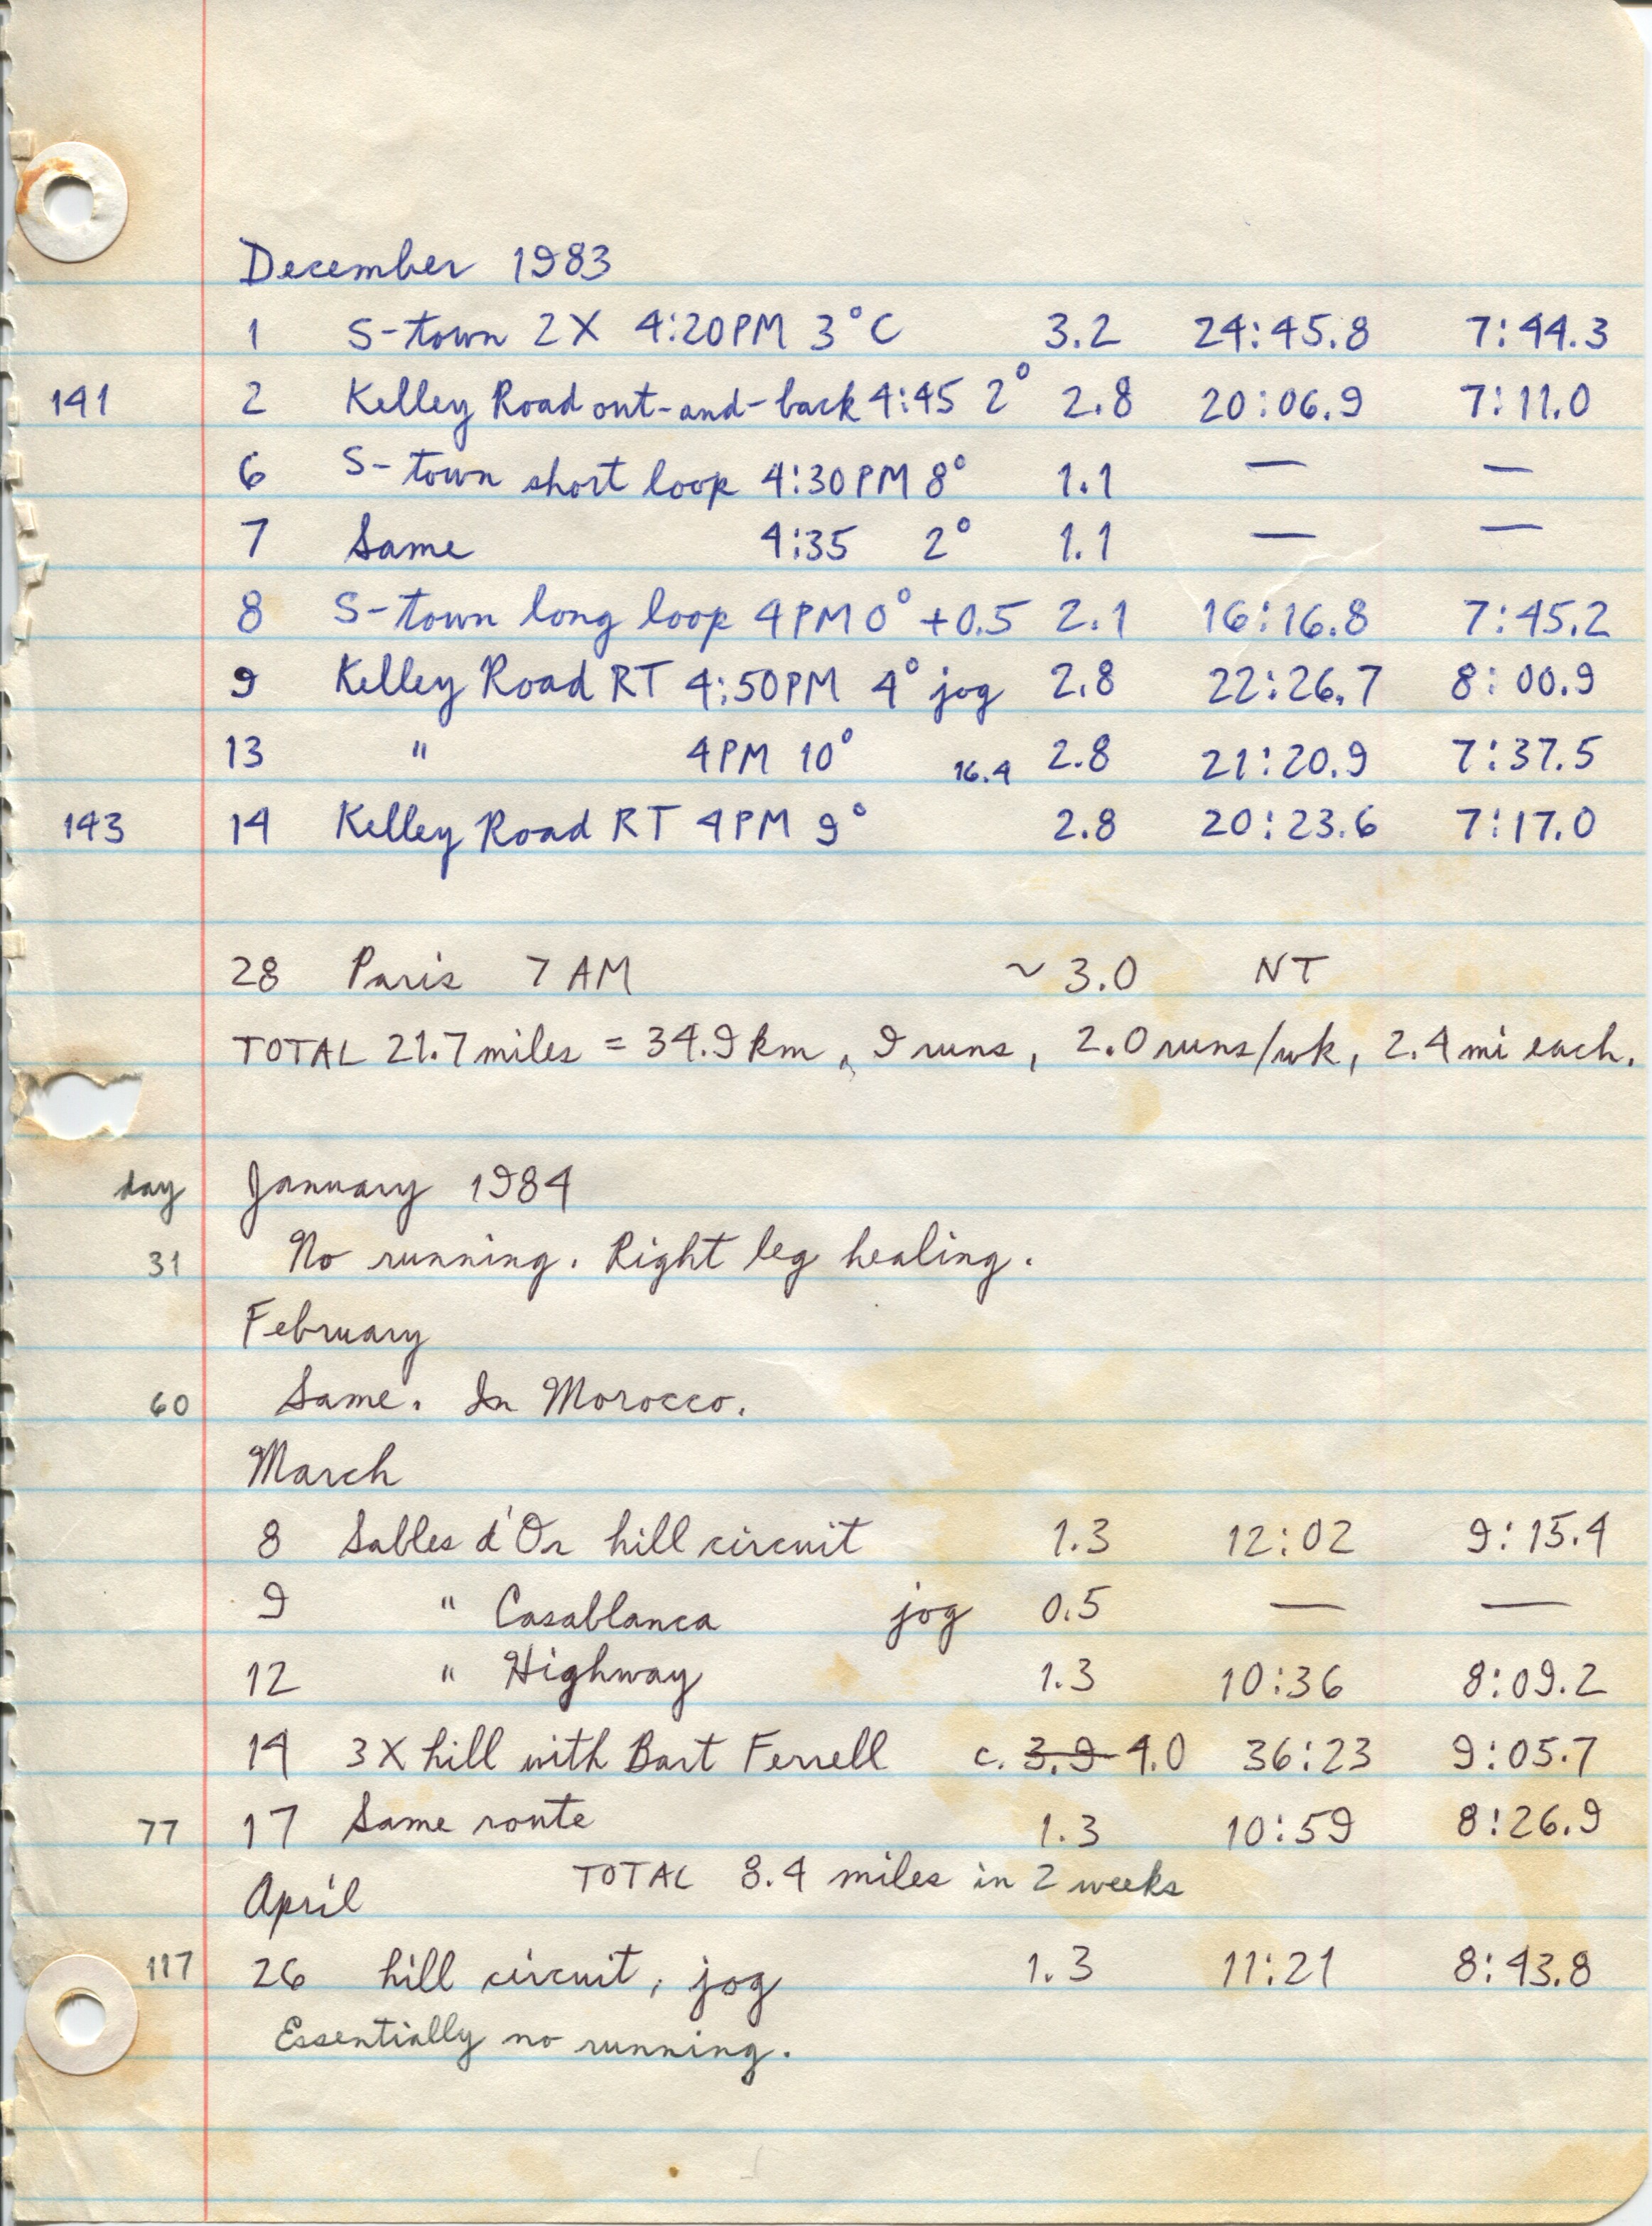 December 1983
1 S-town 2X 4:20PM 3°C 3.2 24:45.8 7:44.3
141 2 Kelley Road out-and-back 4:45 2° 2.8 20:06.9 7:11.0
6 S-town short loop 4:30PM 8° 1.1 — —
7 Same 4:35 2° 1.1 — —
8 S-town long loop 4PM 0° +0.5 2.1 16:16.8 7:45.2
9 Kelley Road RT 4:50PM 4° jog 2.8 22:26.7 8:00.9
13 " 4PM 10° 16.4 2.8 21:20.9 7:37.5
143 14 Kelley Road RT 4PM 9° 2.8 20:23.6 7:17.0
28 Paris 7 AM ~3.0 NT
TOTAL 21.7 miles = 34.9 km, 9 runs, 2.0 runs/wk, 2.4 mi each.
day January 1984
31 No running. Right leg healing.
February
60 Same. In Morocco.
March
8 Sables d'Or hill circuit 1.3 12:02 9:15.4
9 " Casablanca jog 0.5 — —
12 " Highway 1.3 10:36 8:09.2
14 3X hill with Bart Ferrell c. 3.9 4.0 36:23 9:05.7
77 17 Same route 1.3 10:59 8:26.9
TOTAL 8.4 miles in 2 weeks
April
117 26 hill circuit, jog 1.3 11:21 8:43.8
Essentially no running.